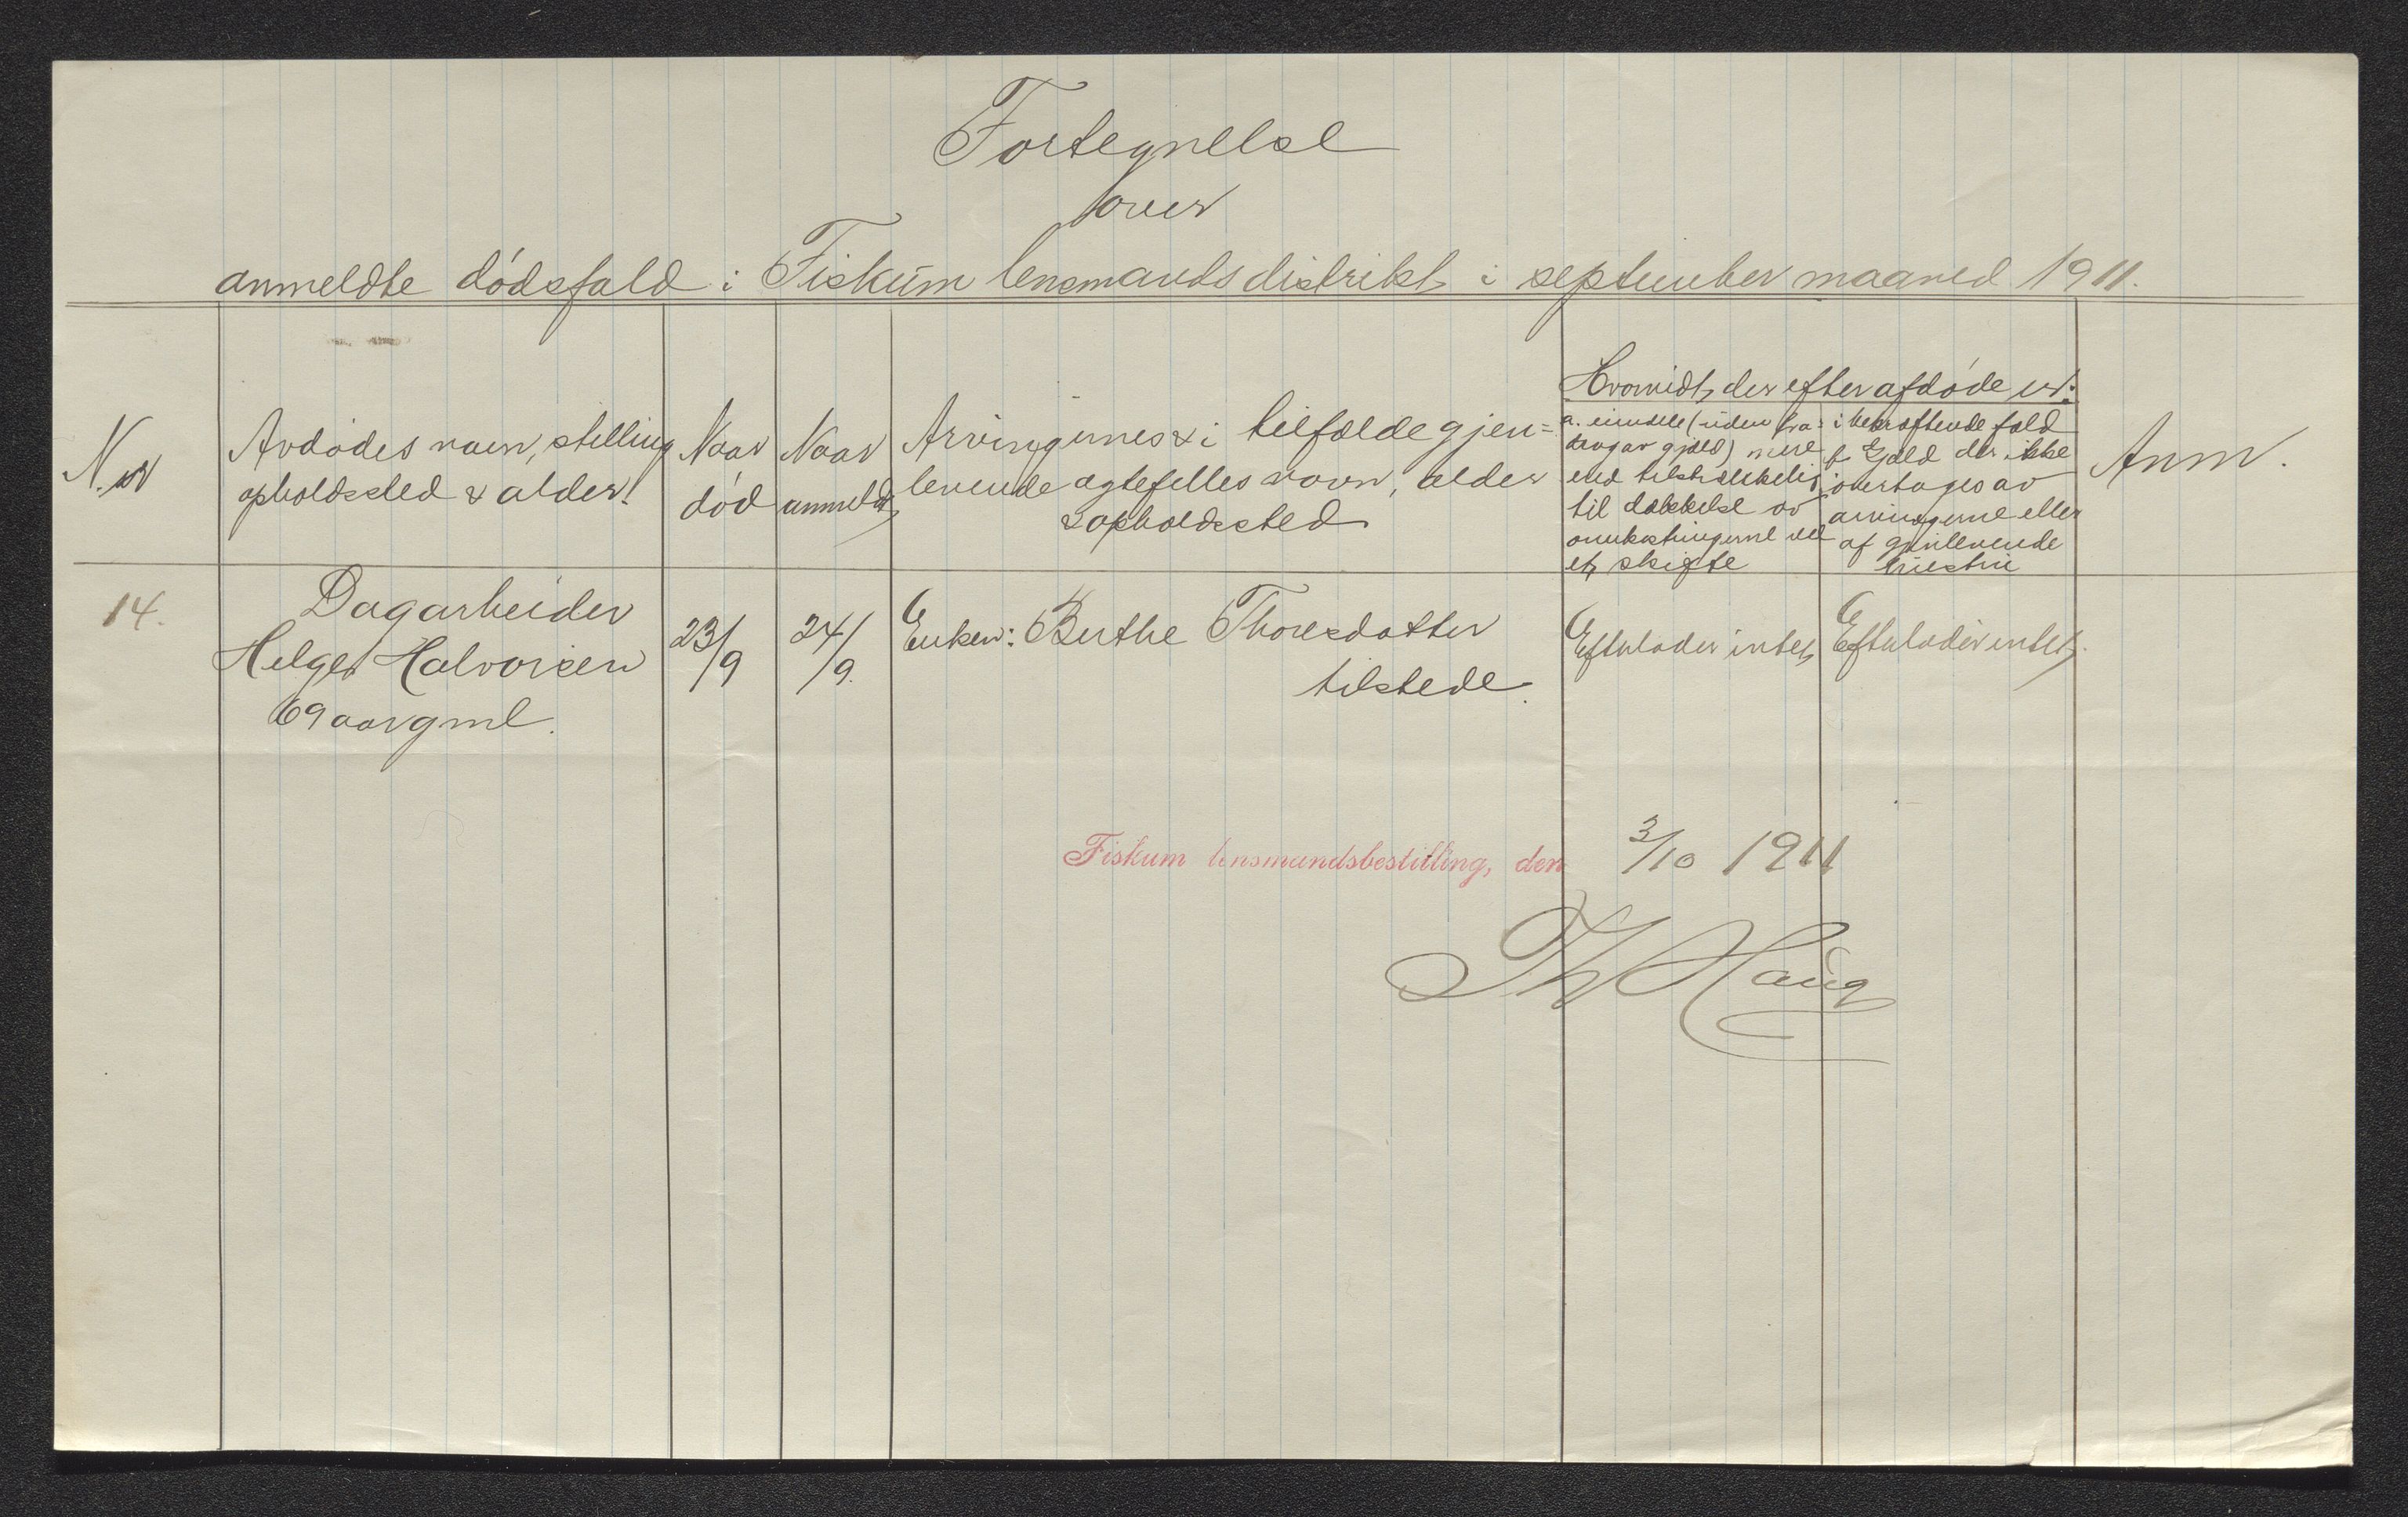 Fortegnelse
over
anmeldte dødsfald i Fiskum lensmandsdistrikt i september maaned 1911.
N. or
Avdødes navn, stilling
opholdssted & alder.
Naar
død
Naar
anmeldt
Arvingernes & i tilfælde gjen=
levende ægtefelles navn, alder
& opholdssted
Hvorvidt der efter afdøde er:
a. eiendele (uden fra-
drag av gjæld) mere
end tilstrækkelig
til dækkelse av
omkostningerne ved
et skifte
i bekræftende fald
b gjæld der ikke
overtages av
arvingerne eller
af gjenlevende
hustru
Anm.
14.
Dagarbeider
Helge Halvorsen
69 aar gml.
23/9
24/9.
Enken: Berthe Thoresdatter
tilstede.
Efterlader intet
Efterlader intet.
Fiskum lensmandsbestilling, den 3/10 1911
Th Haug